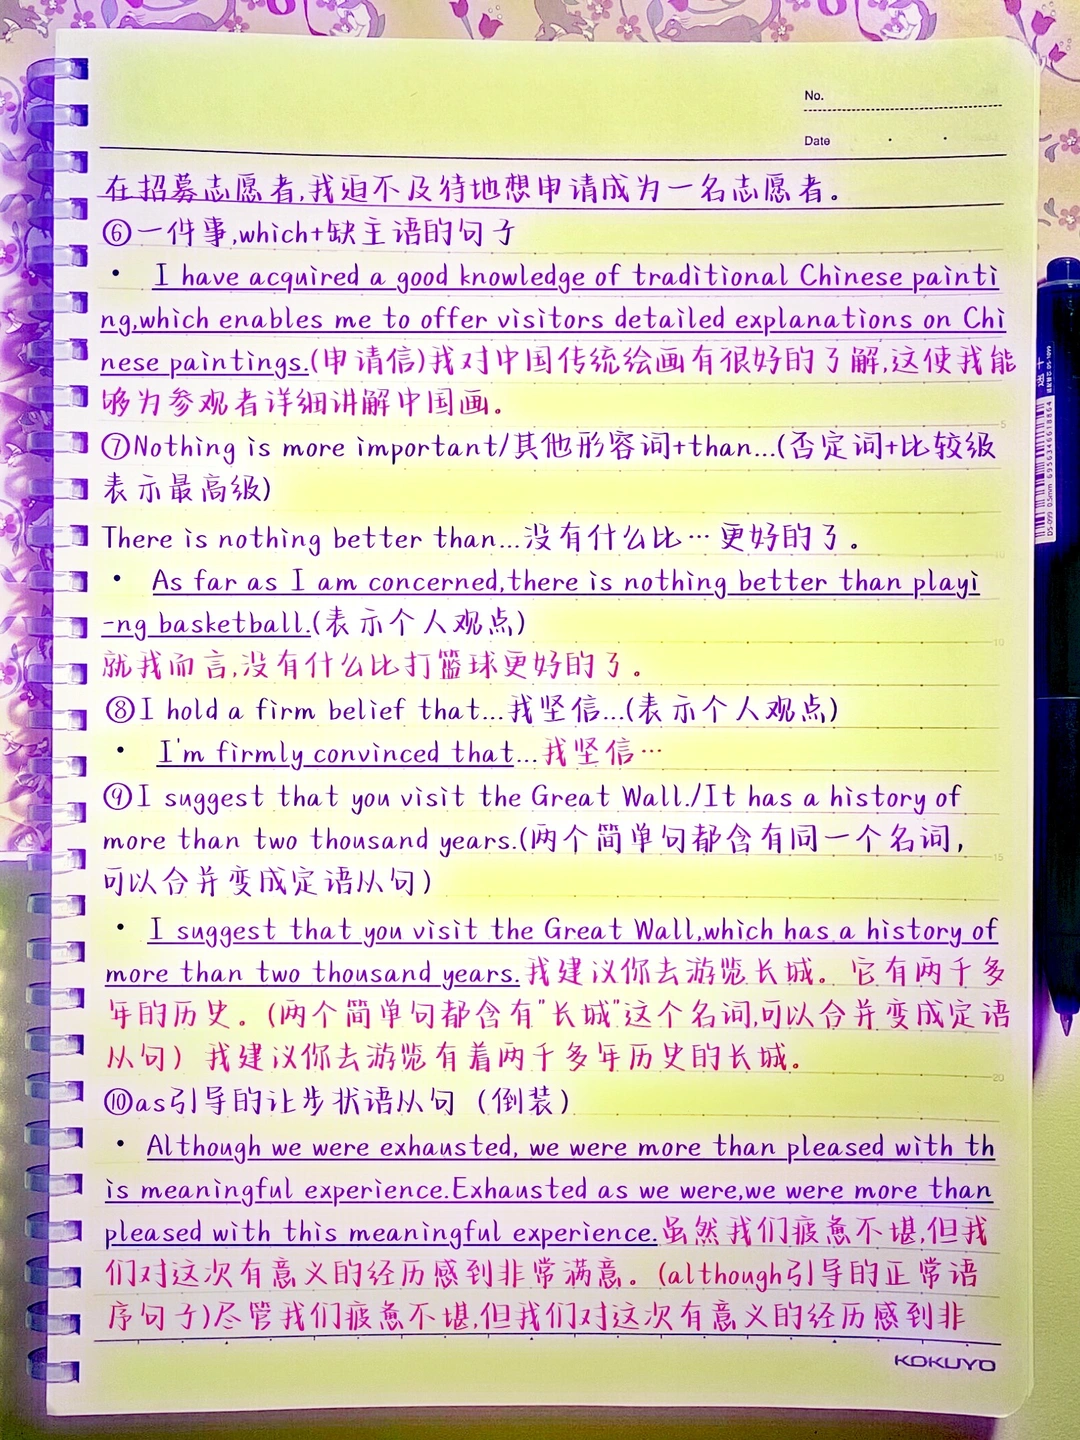 No.
Date
在招募志愿者,我迫不及待地想申请成为一名志愿者。
⑥一件事,which+缺主语的句子
• I have acquired a good knowledge of traditional Chinese painti
ng,which enables me to offer visitors detailed explanations on Chi
nese paintings.(申请信)我对中国传统绘画有很好的了解,这使我能
够为参观者详细讲解中国画。
⑦Nothing is more important/其他形容词+than...(否定词+比较级
表示最高级)
There is nothing better than...没有什么比…更好的了。
• As far as I am concerned,there is nothing better than playi
-ng basketball.(表示个人观点)
就我而言,没有什么比打篮球更好的了。
⑧I hold a firm belief that...我坚信...(表示个人观点)
• I'm firmly convinced that...我坚信…
⑨I suggest that you visit the Great Wall./It has a history of
more than two thousand years.(两个简单句都含有同一个名词,
可以合并变成定语从句)
• I suggest that you visit the Great Wall,which has a history of
more than two thousand years.我建议你去游览长城。它有两千多
年的历史。(两个简单句都含有"长城"这个名词,可以合并变成定语
从句) 我建议你去游览有着两千多年历史的长城。
⑩as引导的让步状语从句(倒装)
• Although we were exhausted, we were more than pleased with th
is meaningful experience.Exhausted as we were,we were more than
pleased with this meaningful experience.虽然我们疲惫不堪,但我
们对这次有意义的经历感到非常满意。(although引导的正常语
序句子)尽管我们疲惫不堪,但我们对这次有意义的经历感到非
KOKUYO